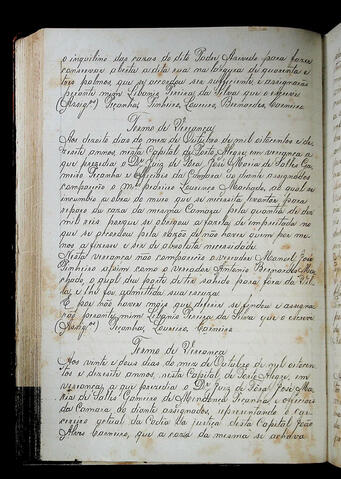 o inquilino das casas do dito Padre Azevedo para fazer
conservar aberta a dita rua na largura de quarenta e
tres palmos, que se accordou ser sufficiente e assignarão
perante mim Libanio Pereira da Silva que o escrevi
Peçanha, Pinheiro, Loureiro, Bernardes, Carneiro
Termo de Vereança
Aos dezoito dias do mez de Outubro de mil oitocentos e
dezoito annos, nesta Capital de Porto Alegre em vereança a
que prezidio o Dr. Juiz de Fóra José Maria de Salles
Peçanha e Officiaes da Camara ao diante assignados
compareceo o Me. pedreiro Lourenço Machado, ao qual se
incumbio a obra do muro que se necessita levantar para
reparo da caza da mesma Camara pela quantia de dez
mil reis porque se obrigou a fazela de empreitada no
que se accordou pela razão de não haver quem por me-
nos a fizesse e ser de absoluta necessidade.
Nesta vereança não compareceo o vereador Manoel José
Pinheiro assim como o vereador Antonio Bernardes Ma-
chado o qual deo parte de ter sahido para fora da Vil-
la, e lhe foi admittida sua escuza.
E por não haver mais que deferir se findou e assigna-
rão perante mim Libanio Pereira da Silva que o escrevi
Peçanha, Loureiro, Carneiro
Termo de Vereança
Aos vinte e dous dias do mez de Outubro de mil oitocen-
tos e dezoito annos, nesta Capital de Porto Alegre em
vereança a que prezidio o Dr. Juiz de Fóra José Ma-
ria de Salles Gameiro de Mendonça Peçanha e officiaes
da Camara ao diante assignados, representando o car-
cereiro actual da Cadea da justiça desta Capital João
Alves Carneiro, que a caza da mesma se achava